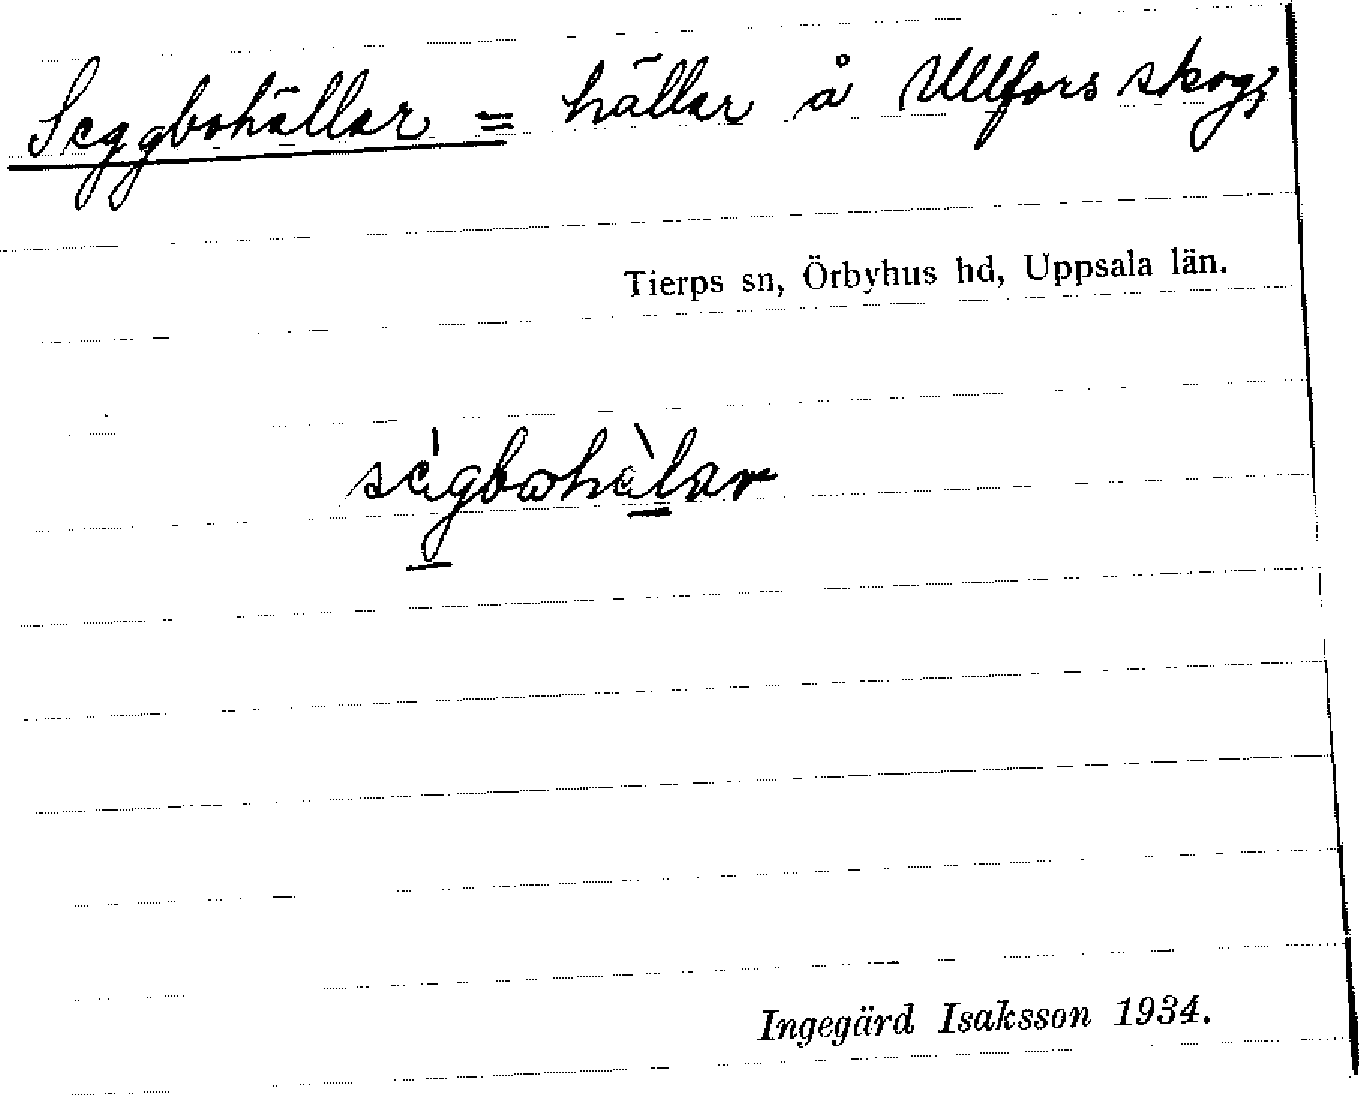 Seggbohällar = hällar å Ullfors skog,
Tierps sn, Örbyhus hd, Uppsala län.
ségbohὰlar
Ingegärd Isaksson 1934.